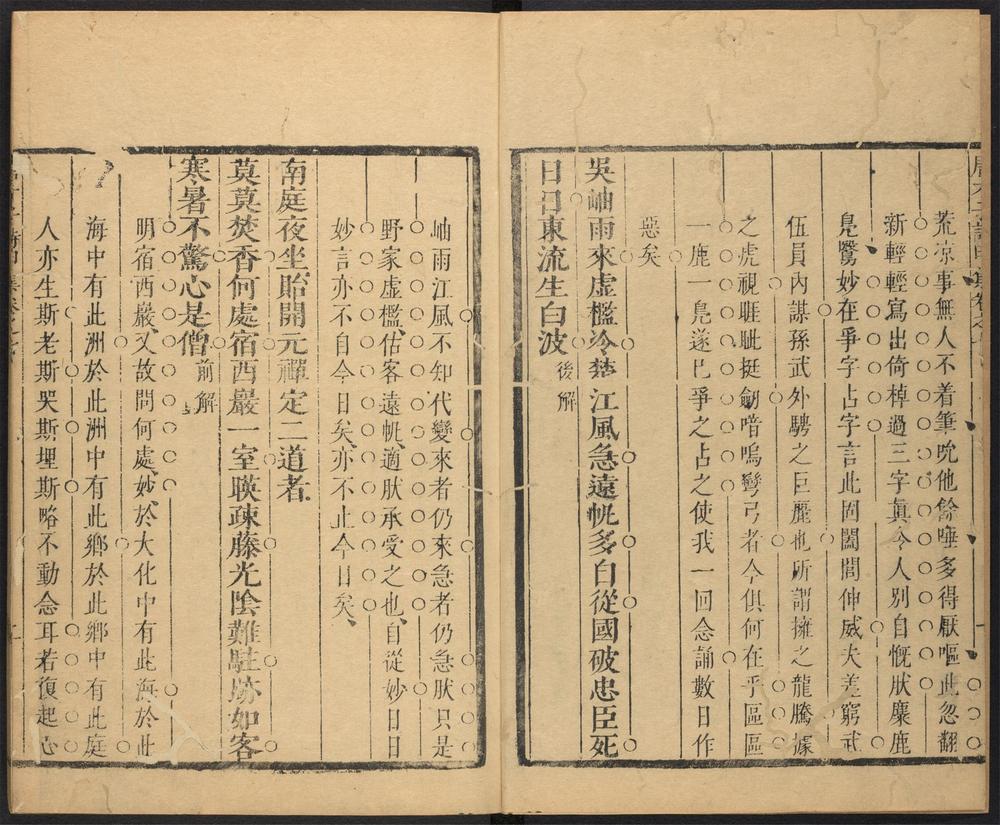 荒凉事無人不着筆吮他餘唾多得厭嘔此忽翻
新輕輕寫出倚棹過三字眞令人别自慨肰麋鹿
鳧鷖妙在爭字占字言此固闔閭伸威夫差窮武
伍員內謀孫武外騁之巨麗也所謂擁之龍騰據
之虎視睚眦挺劒喑嗚彎弓者今俱何在乎區區
一鹿一鳧遂已爭之占之使我一回念誦數日作
惡矣
吳岫雨來虛檻冷楚江風急遠帆多自從國破忠臣死
日日東流生白波後解
岫雨江風不知代變來者仍來急者仍急肰只是
野家虛檻、估客遠帆、適肰承受之也、自從妙日日
妙言亦不自今日矣、亦不止今日矣、
南庭夜坐貽開元禪定二道者
莫莫焚香何處宿西巖一室暎疎藤光陰難駐跡如客
寒暑不驚心是僧前解
明宿西巖、又故問何處、妙、於大化中有此海於此
海中有此洲於此洲中有此鄉於此鄉中有此庭
人亦生斯老斯哭斯埋斯略不動念耳若復起心